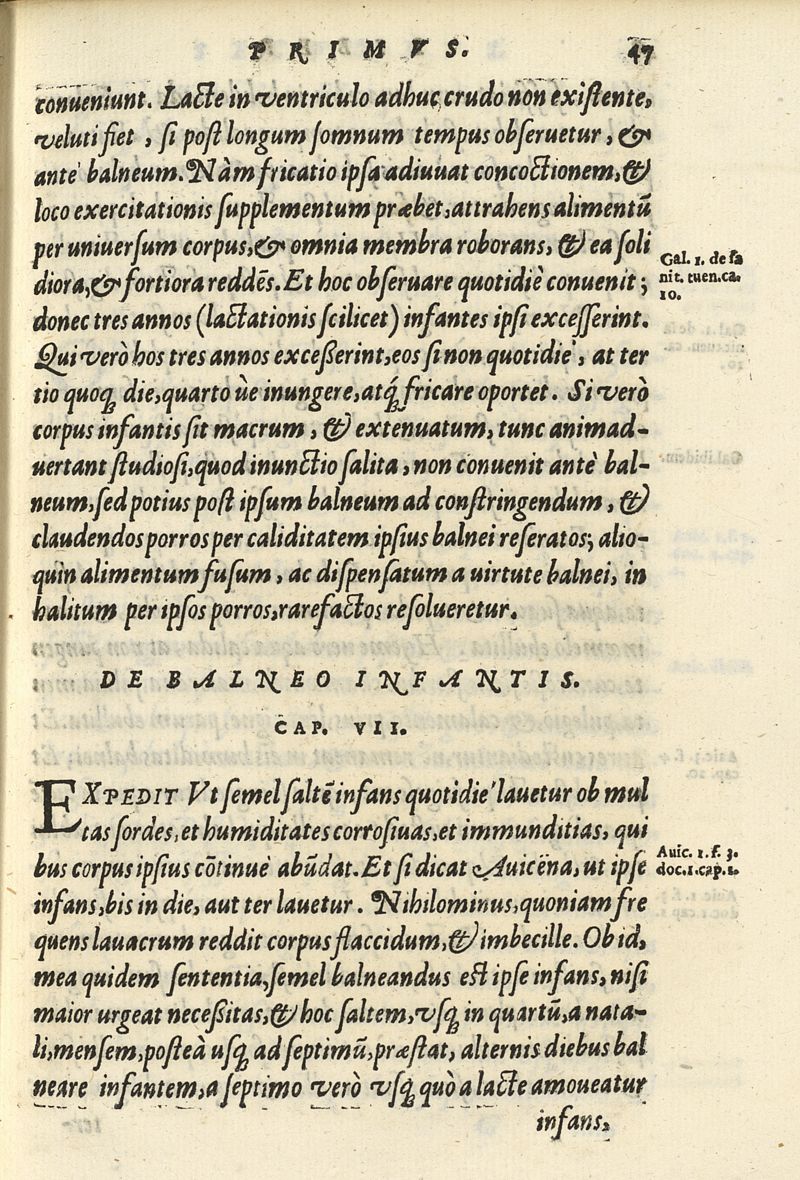 PRIMVS. 47
conueniunt. Lacte in ventriculo adhuc crudo non existente,
veluti fiet, si post longum somnum tempus obseruetur, &
ante balneum. Nàm fricatio ipsa adiuuat concoctionem, &
loco exercitationis supplementum præbet, attrahens alimentū
per uniuersum corpus, & omnia membra roborans, & ea soli
diora, & fortiora reddēs. Et hoc obseruare quotidiè conuenit;
donec tres annos (lactationis scilicet) infantes ipsi excesserint.
Qui verò hos tres annos exceßerint, eos si non quotidiè, at ter
tio quoq; die, quarto ùe inungere, atq́; fricare oportet. Si verò
corpus infantis sit macrum, & extenuatum, tunc animad-
uertant studiosi, quod inunctio salita, non conuenit antè bal-
neum, sed potius post ipsum balneum ad constringendum, &
claudendos porros per caliditatem ipsius balnei reseratos; alio-
quìn alimentum fusum, ac dispensatum a uirtute balnei, in
halitum per ipsos porros, rarefactos resolueretur.
Gal. 1. de sa
nit. tuen. ca.
10.
DE BALNEO INFANTIS.
CAP. VII.
EXPEDIT Vt semel saltē infans quotidie' lauetur ob mul
tas sordes, et humiditates corrosiuas, et immunditias, qui
bus corpus ipsius cōtinuè abūdat. Et si dicat Auicēna, ut ipse
infans, bis in die, aut ter lauetur. Nihilominus, quoniam fre
quens lauacrum reddit corpus flaccidum, & imbecille. Ob id,
mea quidem sententia, semel balneandus est ipse infans, nisi
maior urgeat neceßitas, & hoc saltem, vsq; in quartū, a nata-
li, mensem, posteà usq; ad septimū, præstat, alternis diebus bal
neare infantem, a septimo verò vsq; quò a lacte amoueatur
infans,
Auic. 1. f. 3.
doc. 1. cap. 1.